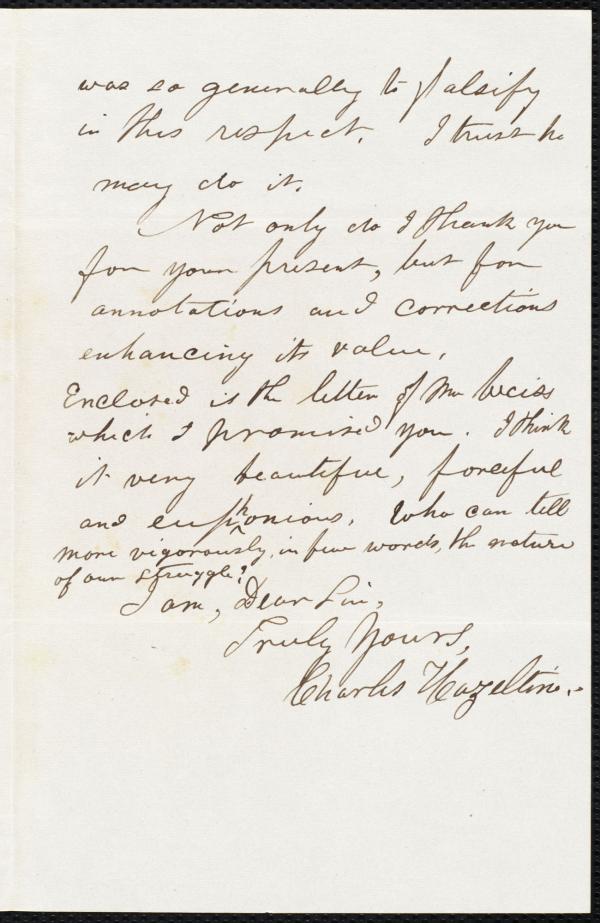 was so generally to falsify
in this respect. I trust he
may do it.
Not only do I thank you
for your present, but for
annotations and corrections
enhancing its value.
Enclosed is the letter of Mr Weiss
which I promised you. I think
it very beautiful, forceful
and euphonious. Who can tell
more vigorously, in few words, the nature
of our struggle?
I am, Dear Sir,
Truly Yours,
Charles Hazeltine.